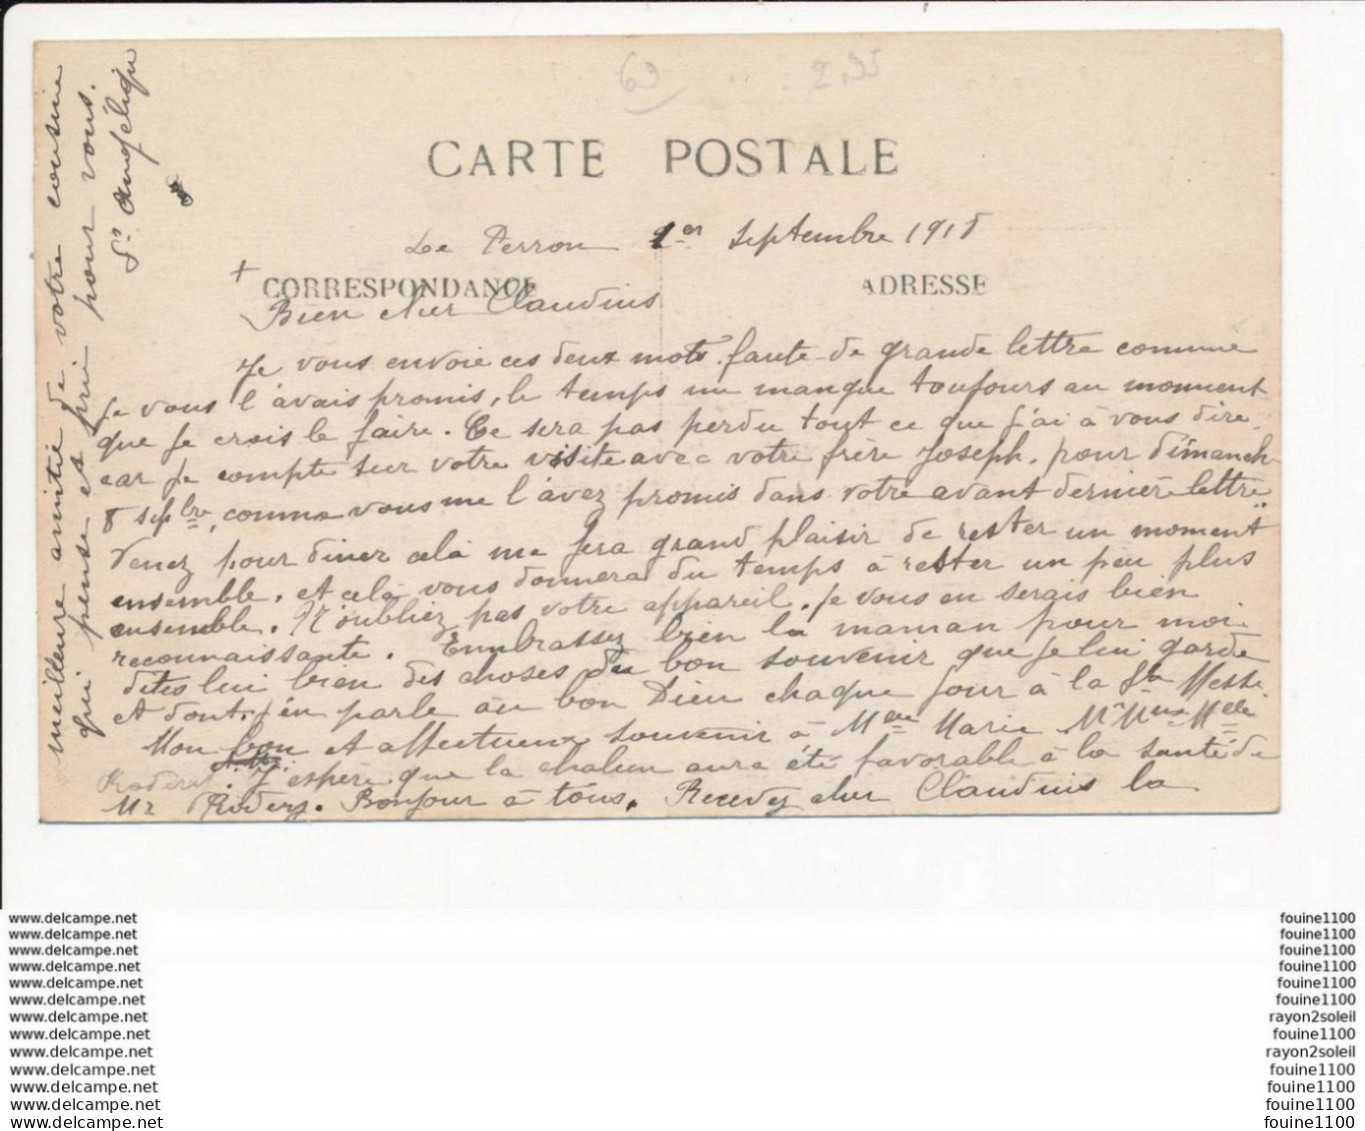 63
2,95
CARTE POSTALE
Le Perron 1er septembre 1918
+
CORRESPONDANCE
ADRESSE
Bien cher Claudius
Je vous envoie ces deux mots faute de grande lettre comme
je vous l'avais promis, le temps me manque toujours au momment
que je crois le faire. Ce sera pas perdu tout ce que j'ai à vous dire,
car je compte sur votre visite avec votre frère Joseph, pour dimanche
8 sepbre, comme vous me l'avez promis dans votre avant dernière lettre
Venez pour diner celà me fera grand plaisir de rester un moment
ensemble, et celà vous donnera du temps à rester un peu plus
ensemble. N'oubliez pas votre appareil, je vous en serais bien
reconnaissante. Embrassez bien la maman pour moi
dites lui bien des choses du bon souvenir que je lui garde
et dont j'en parle au bon Dieu chaque jour à la Ste Messe.
Mon bon et affectueux souvenir à Melle Marie Mr Mme Melle
J'espère que la chaleur aura été favorable à la santé de
Mr Rodery. Bonjour à tous. Recevez cher Claudius la
meilleure amitié de votre cousine
qui pense et prie pour vous.
Sr Angélique
www.delcampe.net
www.delcampe.net
www.delcampe.net
www.delcampe.net
www.delcampe.net
www.delcampe.net
www.delcampe.net
www.delcampe.net
www.delcampe.net
www.delcampe.net
www.delcampe.net
www.delcampe.net
www.delcampe.net
fouine1100
fouine1100
fouine1100
fouine1100
fouine1100
fouine1100
rayon2soleil
fouine1100
rayon2soleil
fouine1100
fouine1100
fouine1100
fouine1100